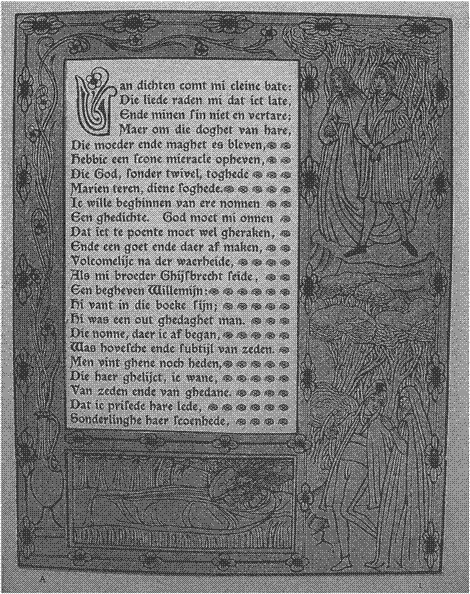 Van dichten comt mi cleine bate:
Die liede raden mi dat ict late,
Ende minen sin niet en vertare;
Maer om die doghet van hare,
Die moeder ende maghet es bleven,
Hebbic een scone mieracle opheven,
Die God, sonder twivel, toghede
Marien teren, diene soghede.
Ic wille beghinnen van ere nonnen
Een ghedichte. God moet mi onnen
Dat ict te poente moet wel gheraken,
Ende een goet ende daer af maken,
Volcomelijc na der waerheide,
Als mi broeder Ghijsbrecht seide,
Een begheven Willemijn:
Hi vant in die boeke sijn;
Hi was een out ghedaghet man.
Die nonne, daer ic af began,
Was hovesche ende subtijl van zeden.
Men vint ghene noch heden,
Die haer ghelijct, ic wane,
Van zeden ende van ghedane.
Dat ic prisede hare lede,
Sonderlinghe haer scoenhede,
A